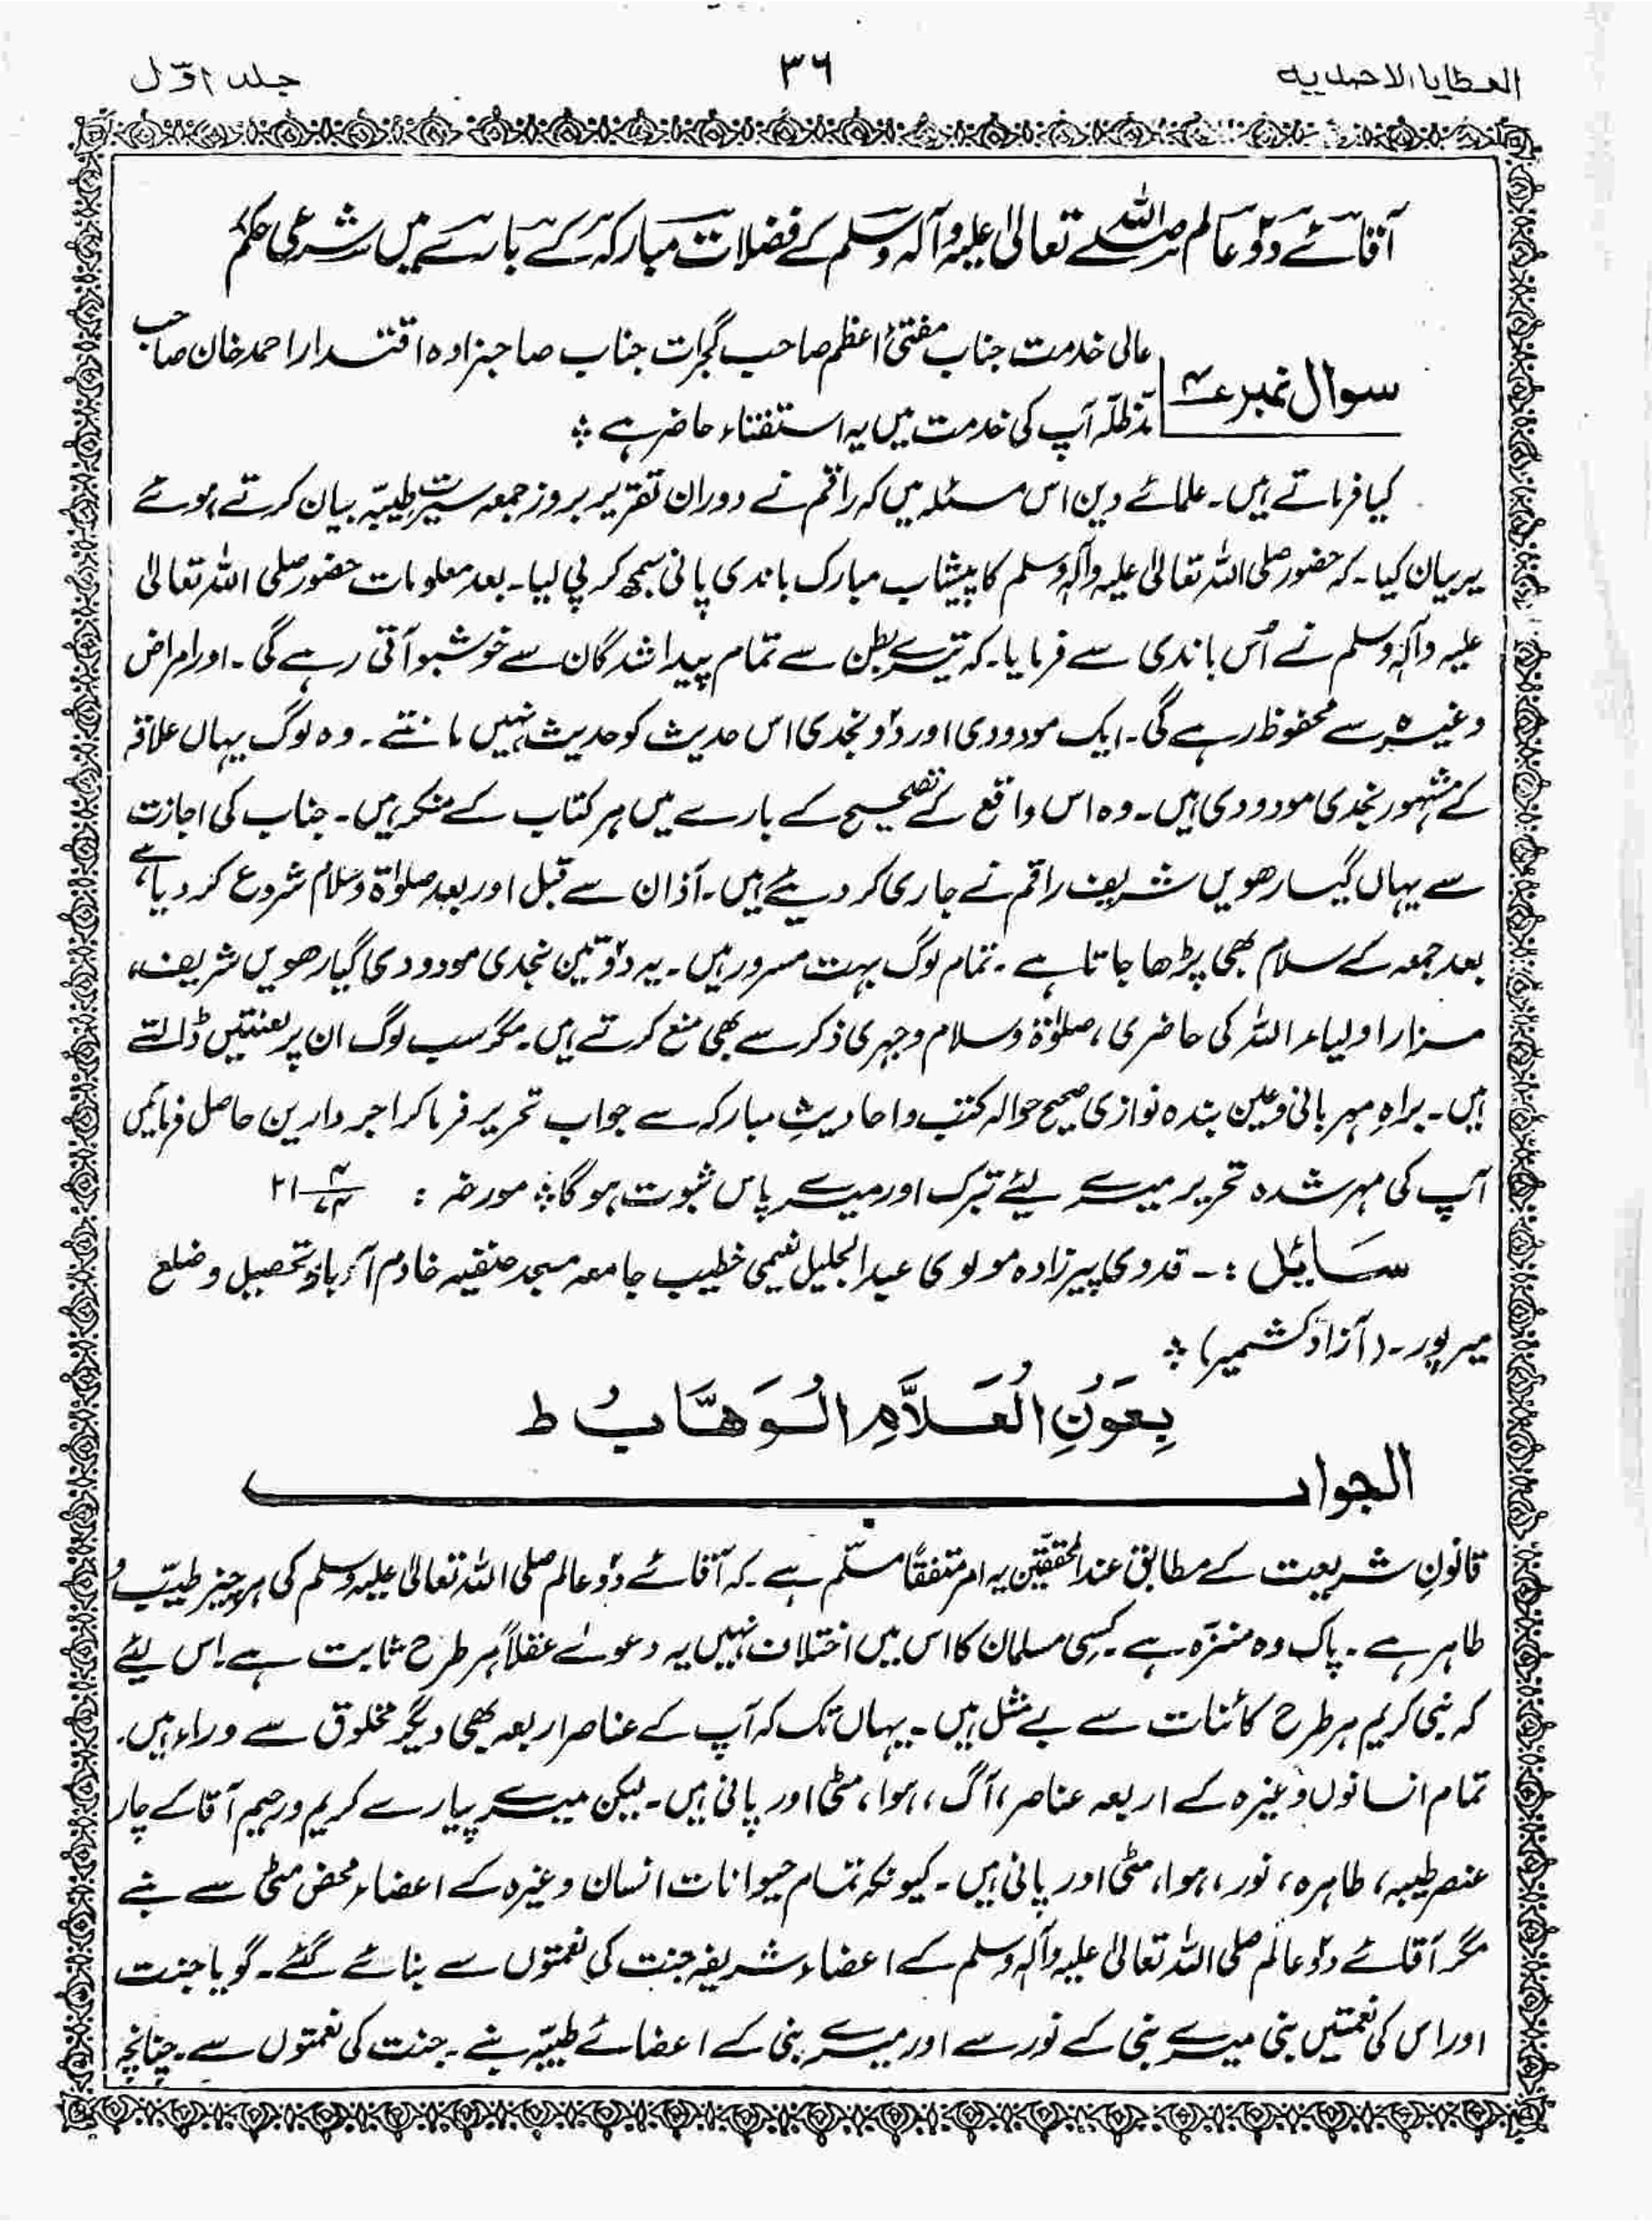 العطایا الاحمدیہ ۳۶ جلد اوّل
آقائے دوعالم صلے اللہ تعالیٰ علیہ وآلہ وسلم کے فضلات مبارکہ کے بارے میں شرعی حکم
سوال نمبر ۴ عالی خدمت جناب مفتیٔ اعظم صاحب گجرات جناب صاحبزادہ اقتدار احمد خان صاحب
مدظلہ آپ کی خدمت میں یہ استفتاء حاضر ہے ؞
کیا فرماتے ہیں۔ علمائے دین اس مسئلہ میں کہ راقم نے دوران تقریر بروز جمعہ سیرت طیبّہ بیان کرتے ہوئے
یہ بیان کیا۔ کہ حضور صلی اللہ تعالیٰ علیہ وآلہٖ وسلم کا پیشاب مبارک باندی پانی سمجھ کر پی لیا۔ بعد معلومات حضور صلی اللہ تعالیٰ
علیہ وآلہٖ وسلم نے اُس باندی سے فرمایا۔ کہ تیرے بطن سے تمام پیدا شدگان سے خوشبو آتی رہے گی۔ اور امراض
وغیرہ سے محفوظ رہے گی۔ ایک مودودی اور دو نجدی اس حدیث کو حدیث نہیں مانتے۔ وہ لوگ یہاں علاقہ
کے مشہور نجدی مودودی ہیں۔ وہ اس واقع کے تصحیح کے بارے میں ہر کتاب کے منکر ہیں۔ جناب کی اجازت
سے یہاں گیارھویں شریف راقم نے جاری کر دیئے ہیں۔ آذان سے قبل اور بعد صلوٰۃ وسلام شروع کر دیا ہے،
بعد جمعہ کے سلام بھی پڑھا جاتا ہے۔ تمام لوگ بہت مسرور ہیں۔ یہ دو تین نجدی مودودی گیارھویں شریف،
مزار اولیاء اللہ کی حاضری، صلوٰۃ وسلام وجہری ذکر سے بھی منع کرتے ہیں۔ مگر سب لوگ ان پر لعنتیں ڈالتے
ہیں۔ براہِ مہربانی وعین بندہ نوازی صحیح حوالہ کتب واحادیثِ مبارکہ سے جواب تحریر فرما کر اجر دارین حاصل فرمائیں
آپ کی مہر شدہ تحریر میرے لیئے تبرک اور میرے پاس ثبوت ہو گا ؞ مورخہ :
سَائِل :۔ قدوی پیرزادہ مولوی عبدالجلیل نعیمی خطیب جامعہ مسجد حنفیہ خادم آباد تحصیل وضلع
میرپور۔ (آزاد کشمیر) ؞
بِعَوْنِ الْعَلَّامِ الْوَهَّابُ ط
الجواب
قانونِ شریعت کے مطابق عند المحققین یہ امر متفقاً مسلّم ہے۔ کہ آقائے دوعالم صلی اللہ تعالیٰ علیہ وسلم کی ہر چیز طیبّ و
طاہر ہے۔ پاک وہ منزّہ ہے۔ کسی مسلمان کا اس میں اختلاف نہیں یہ دعوےٰ عقلاً ہر طرح ثابت ہے۔ اس لیئے
کہ نبی کریم ہر طرح کائنات سے بے مثل ہیں۔ یہاں تک کہ آپ کے عناصر اربعہ بھی دیگر مخلوق سے وراء ہیں۔
تمام انسانوں وغیرہ کے اربعہ عناصر، آگ، ہوا، مٹی اور پانی ہیں۔ لیکن میرے پیارے کریم ورحیم آقا کے چار
عنصر طیبہ، طاہرہ، نور، ہوا، مٹی اور پانی ہیں۔ کیونکہ تمام حیوانات انسان وغیرہ کے اعضاء محض مٹی سے بنے
مگر آقائے دوعالم صلی اللہ تعالیٰ علیہ وآلہٖ وسلم کے اعضاء شریفہ جنت کی نعمتوں سے بنائے گئے۔ گویا جنت
اور اس کی نعمتیں بنی میرے نبی کے نور سے اور میرے نبی کے اعضائے طیبّہ بنے۔ جنت کی نعمتوں سے۔ چنانچہ